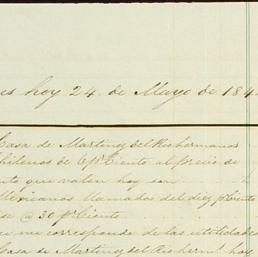 hoy 24 de Mayo de 184
Casa de Martinez del Rio hermanos
Chilenos de 6 pr Ciento al precio de
que valen hoy son
Mexicanos llamados del diez pr Ciento
@ 30 pr Ciento
me corresponde de las utilidades
Casa de Martinez del Rio herms hoy